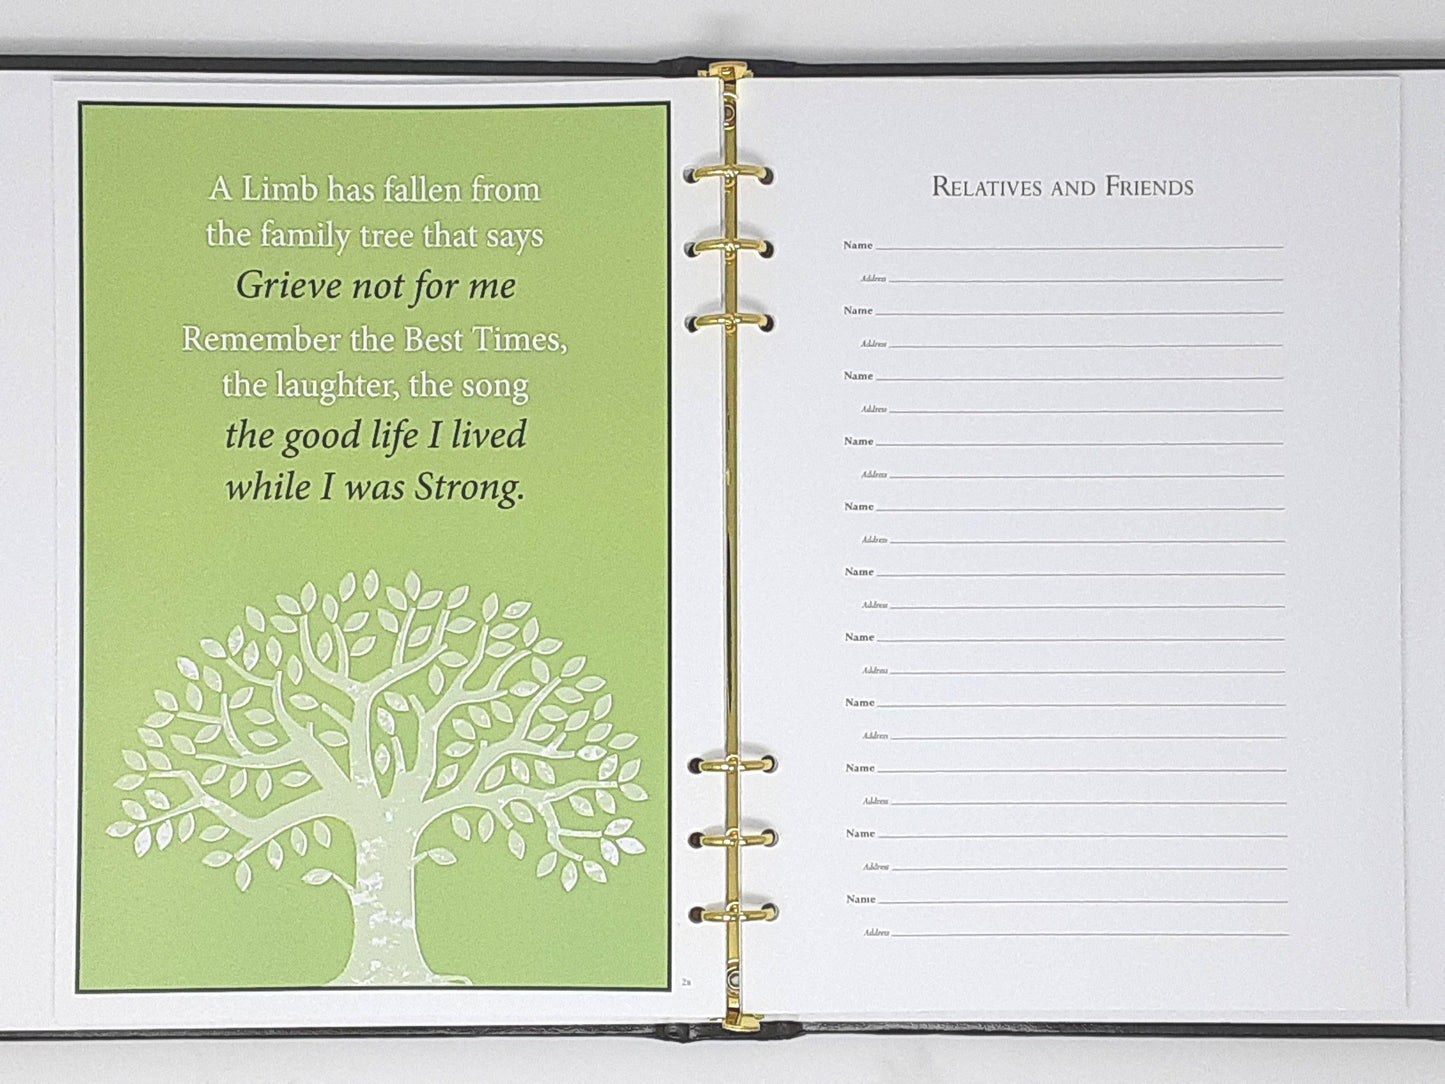 A Limb has fallen from
the family tree that says
Grieve not for me
Remember the Best Times,
the laughter, the song
the good life I lived
while I was Strong.
RELATIVES AND FRIENDS
Name
Address
Name
Address
Name
Address
Name
Address
Name
Address
Name
Address
Name
Address
Name
Address
Name
Address
Name
Address
Name
Address